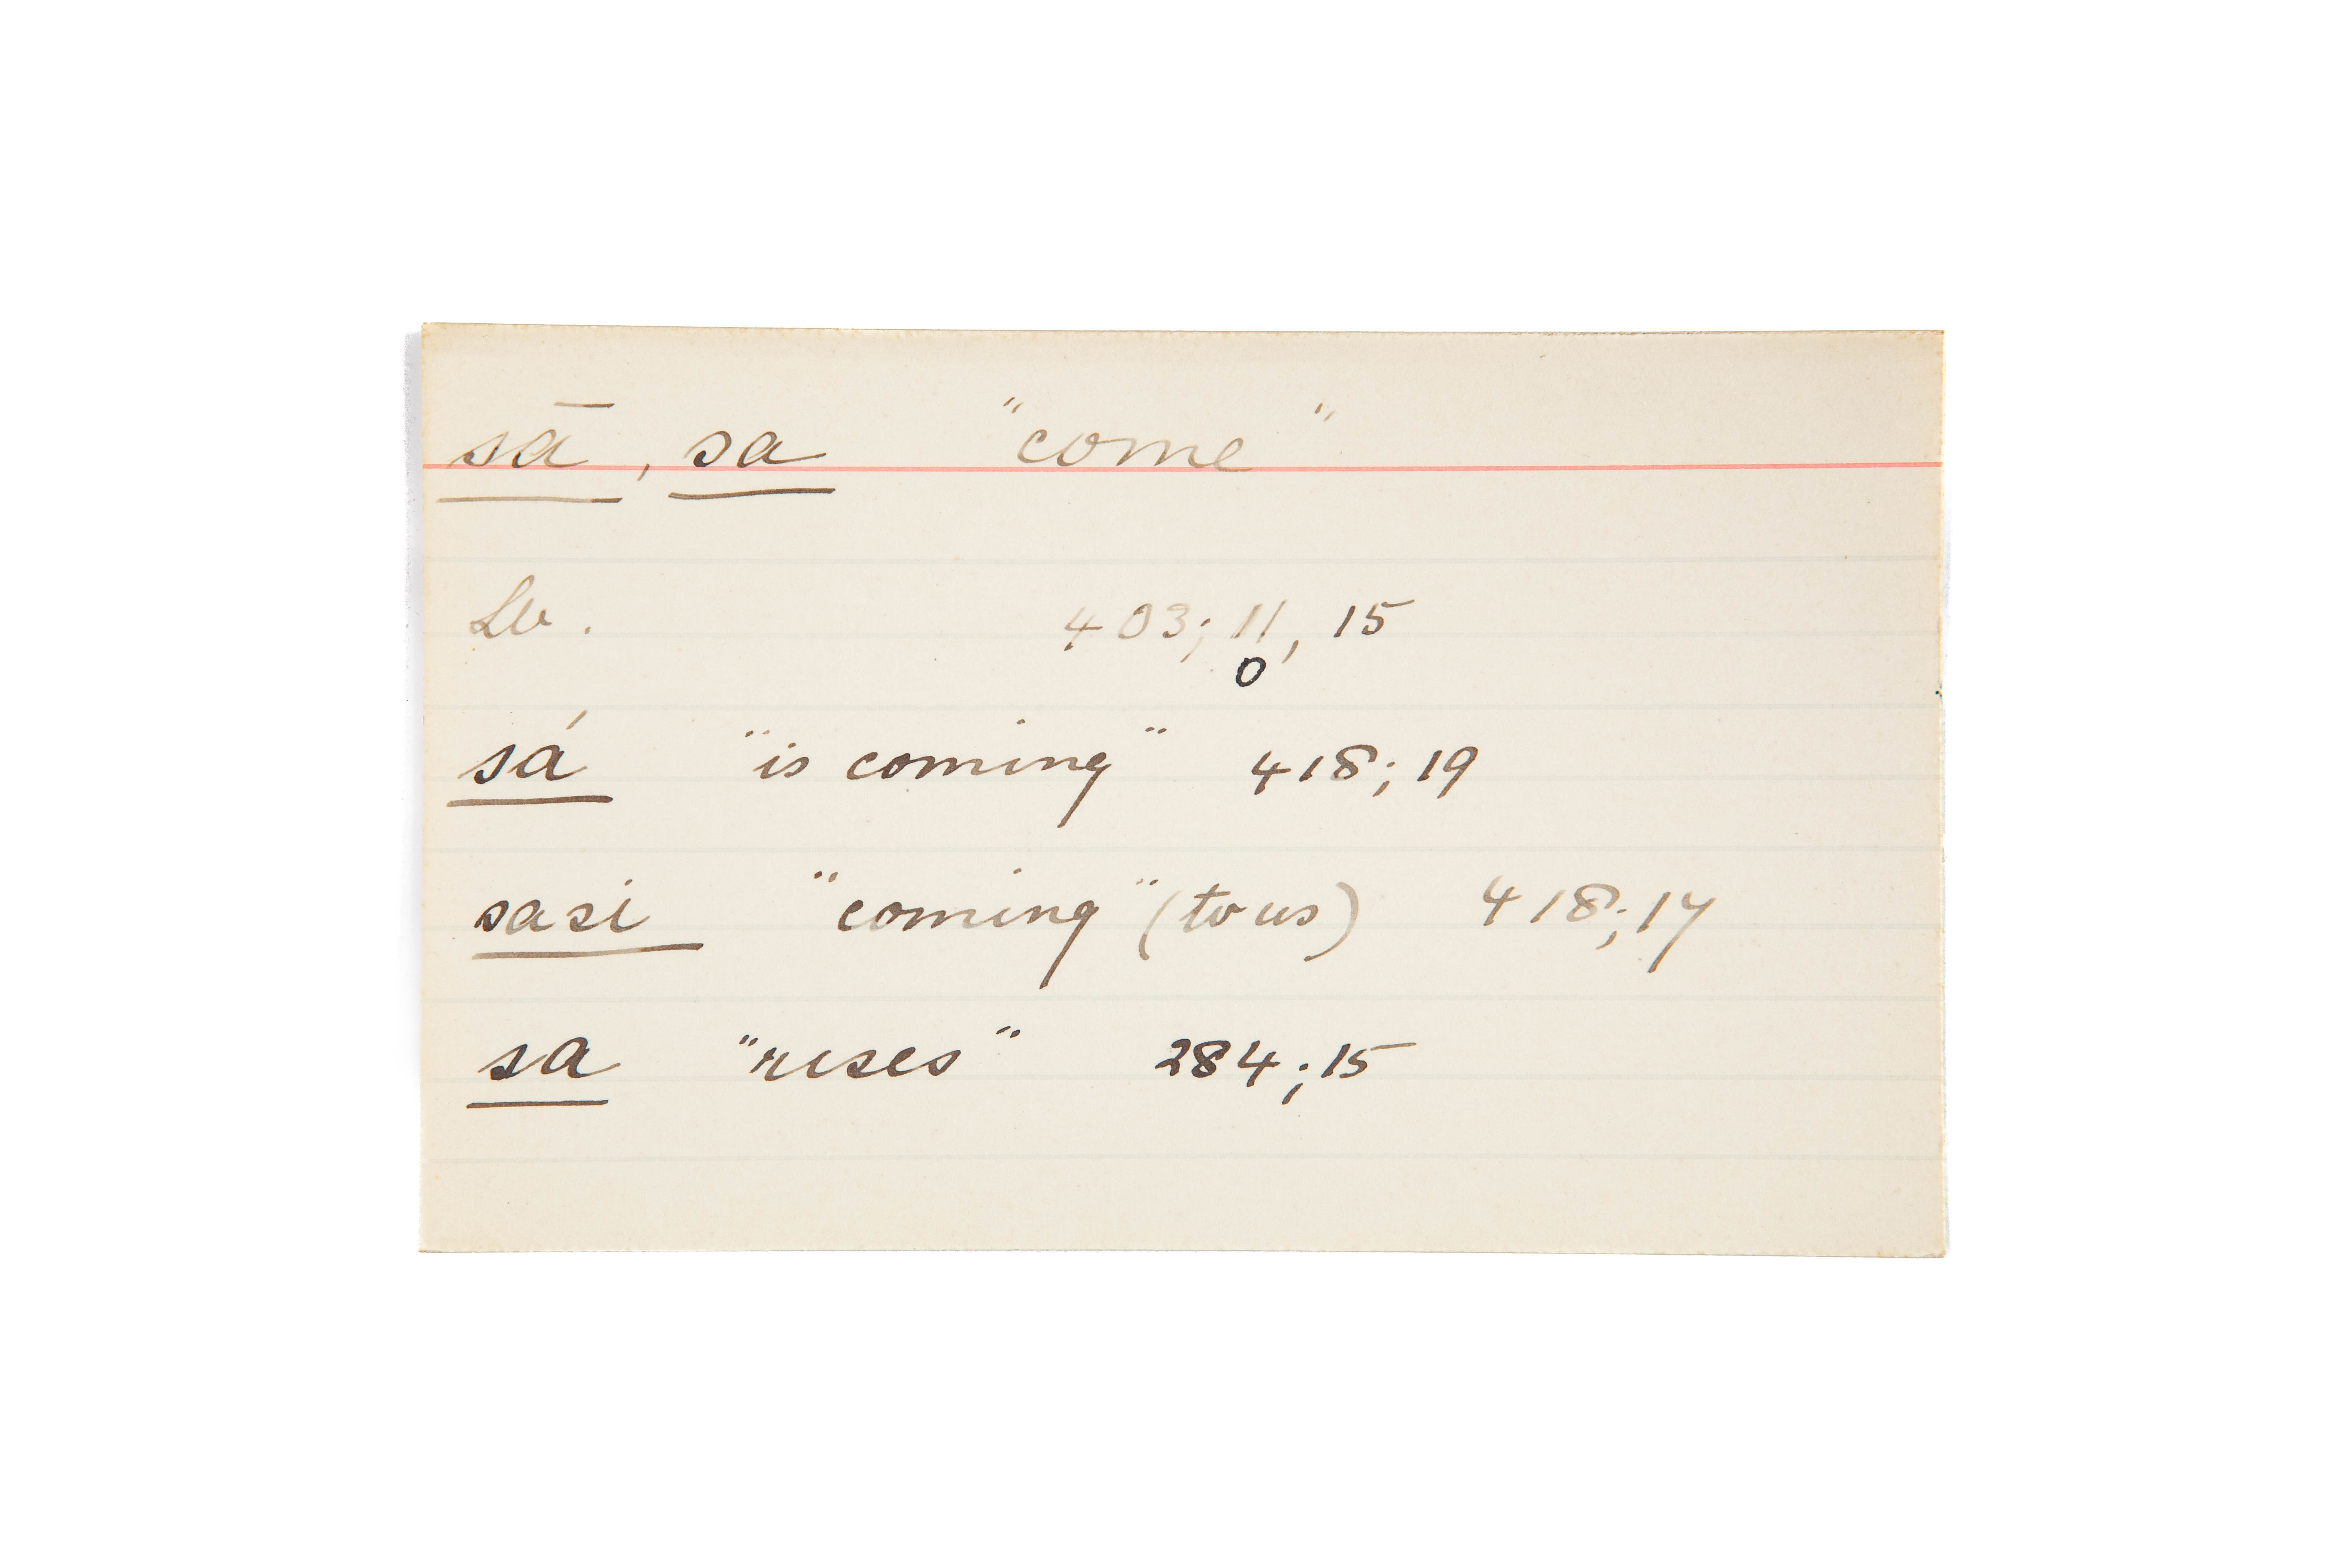 sā, sa "come"
Lb. 403; 11, 15
o
sá "is coming" 418; 19
sasi "coming" (to us) 418; 17
sa "rises" 284; 15